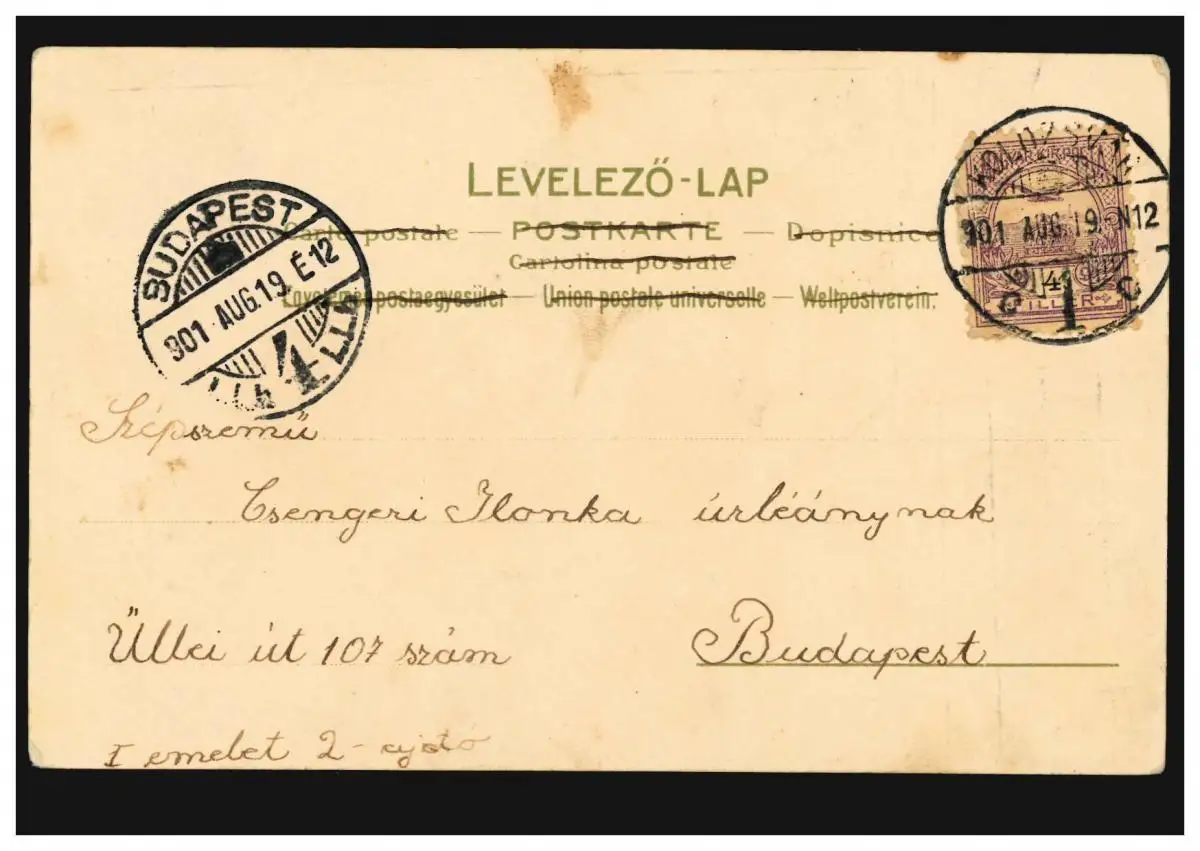 LEVELEZŐ-LAP
Carta postale — POSTKARTE — Dopisnice
Cartolina postale
Levelezes postaegyesület — Union postale universelle — Weltpostverein.
BUDAPEST
901 AUG. 19. É 12
4
KOLOZSVÁR
901 AUG. 19. N12
1
MAGYAR KIR. POSTA
4
FILLÉR
Szépszemű
Csengeri Ilonka úrléánynak
Üllei út 107 szám
Budapest
I emelet 2- ajtó